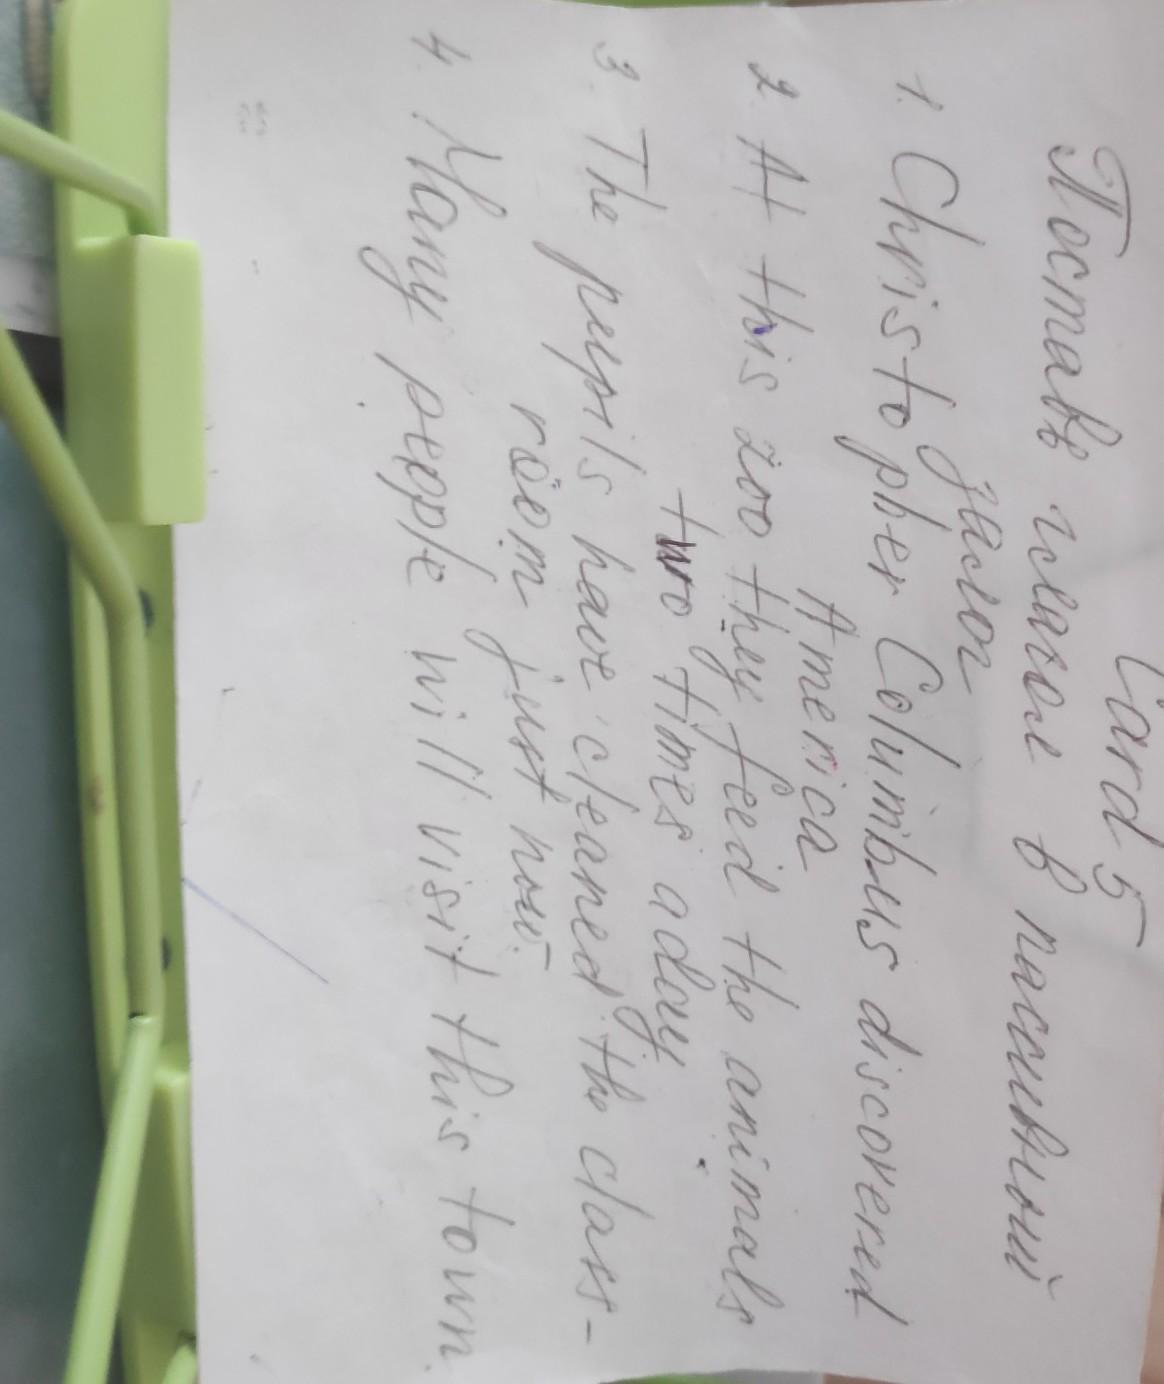 Card 5
Поставь глагол в пассивный
залог
1. Christopher Columbus discovered
America
2. At this zoo they feed the animals
two times a day
3. The pupils have cleaned the class-
room just now.
4. Many people will visit this town.